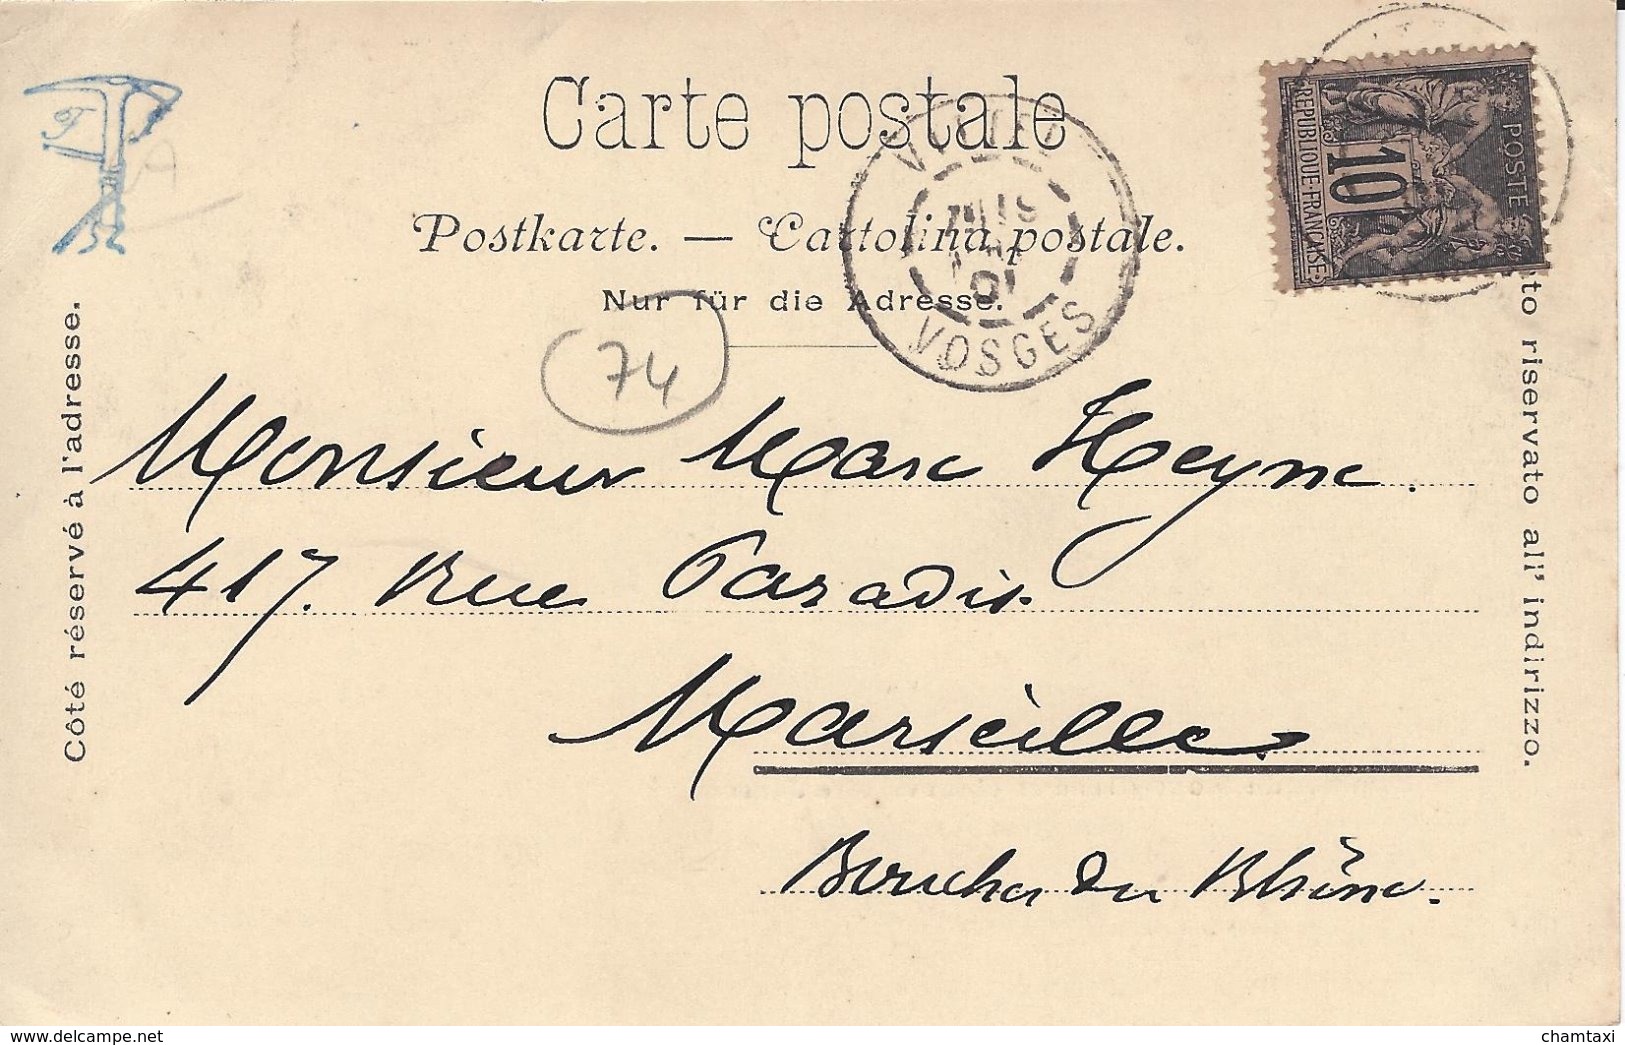 Carte postale
Postkarte. — Cartolina postale.
Nur für die Adresse.
Côté réservé à l'adresse.
riservato all' indirizzo.
POSTE
10
REPUBLIQUE-FRANÇAISE
VOSGES
01
74
Monsieur Marc Heyne.
417. Rue Paradis.
Marseille
Bouches du Rhône.
www.delcampe.net
chamtaxi